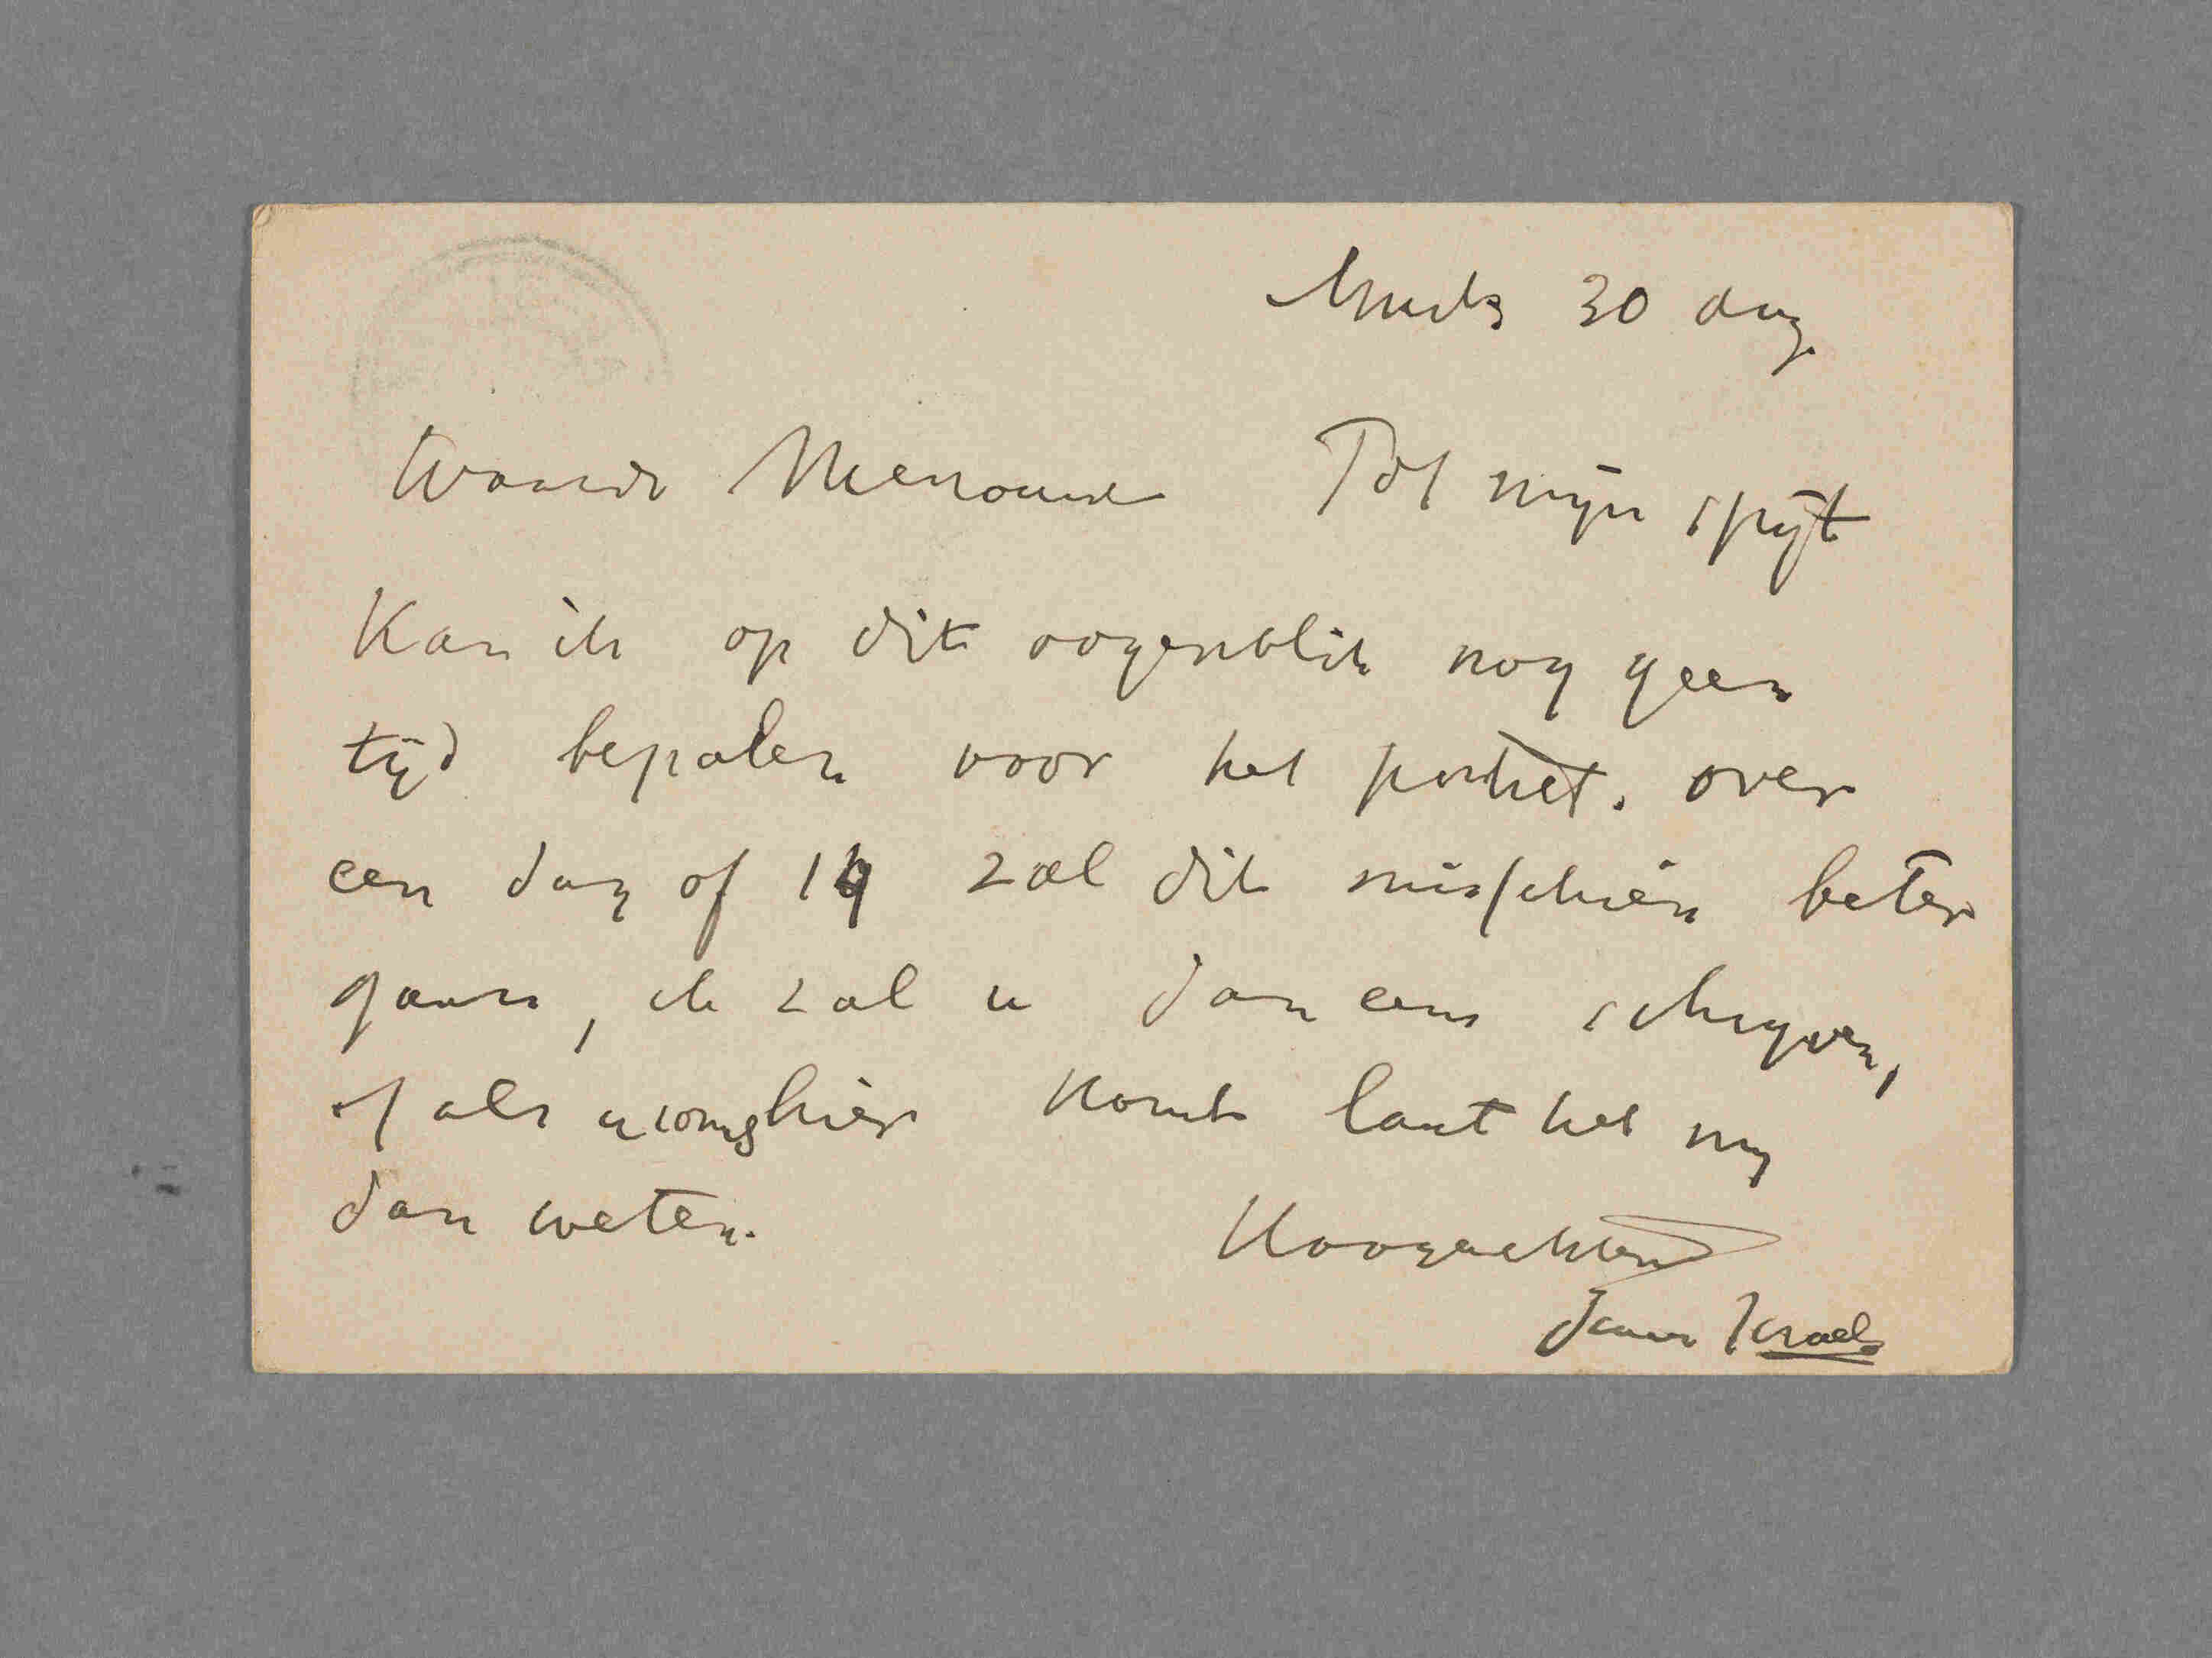 30 aug.
Waarde Mevrouw Tot mijn spijt
Kan ik op dit oogenblik nog geen
tijd bepalen voor het portret. over
een dag of 14 zal dit misschien beter
gaan, ik zal u dan eens schrijven,
of als u soms hier komt laat het mij
dan weten.
Hoogachtend
Isaac Israels